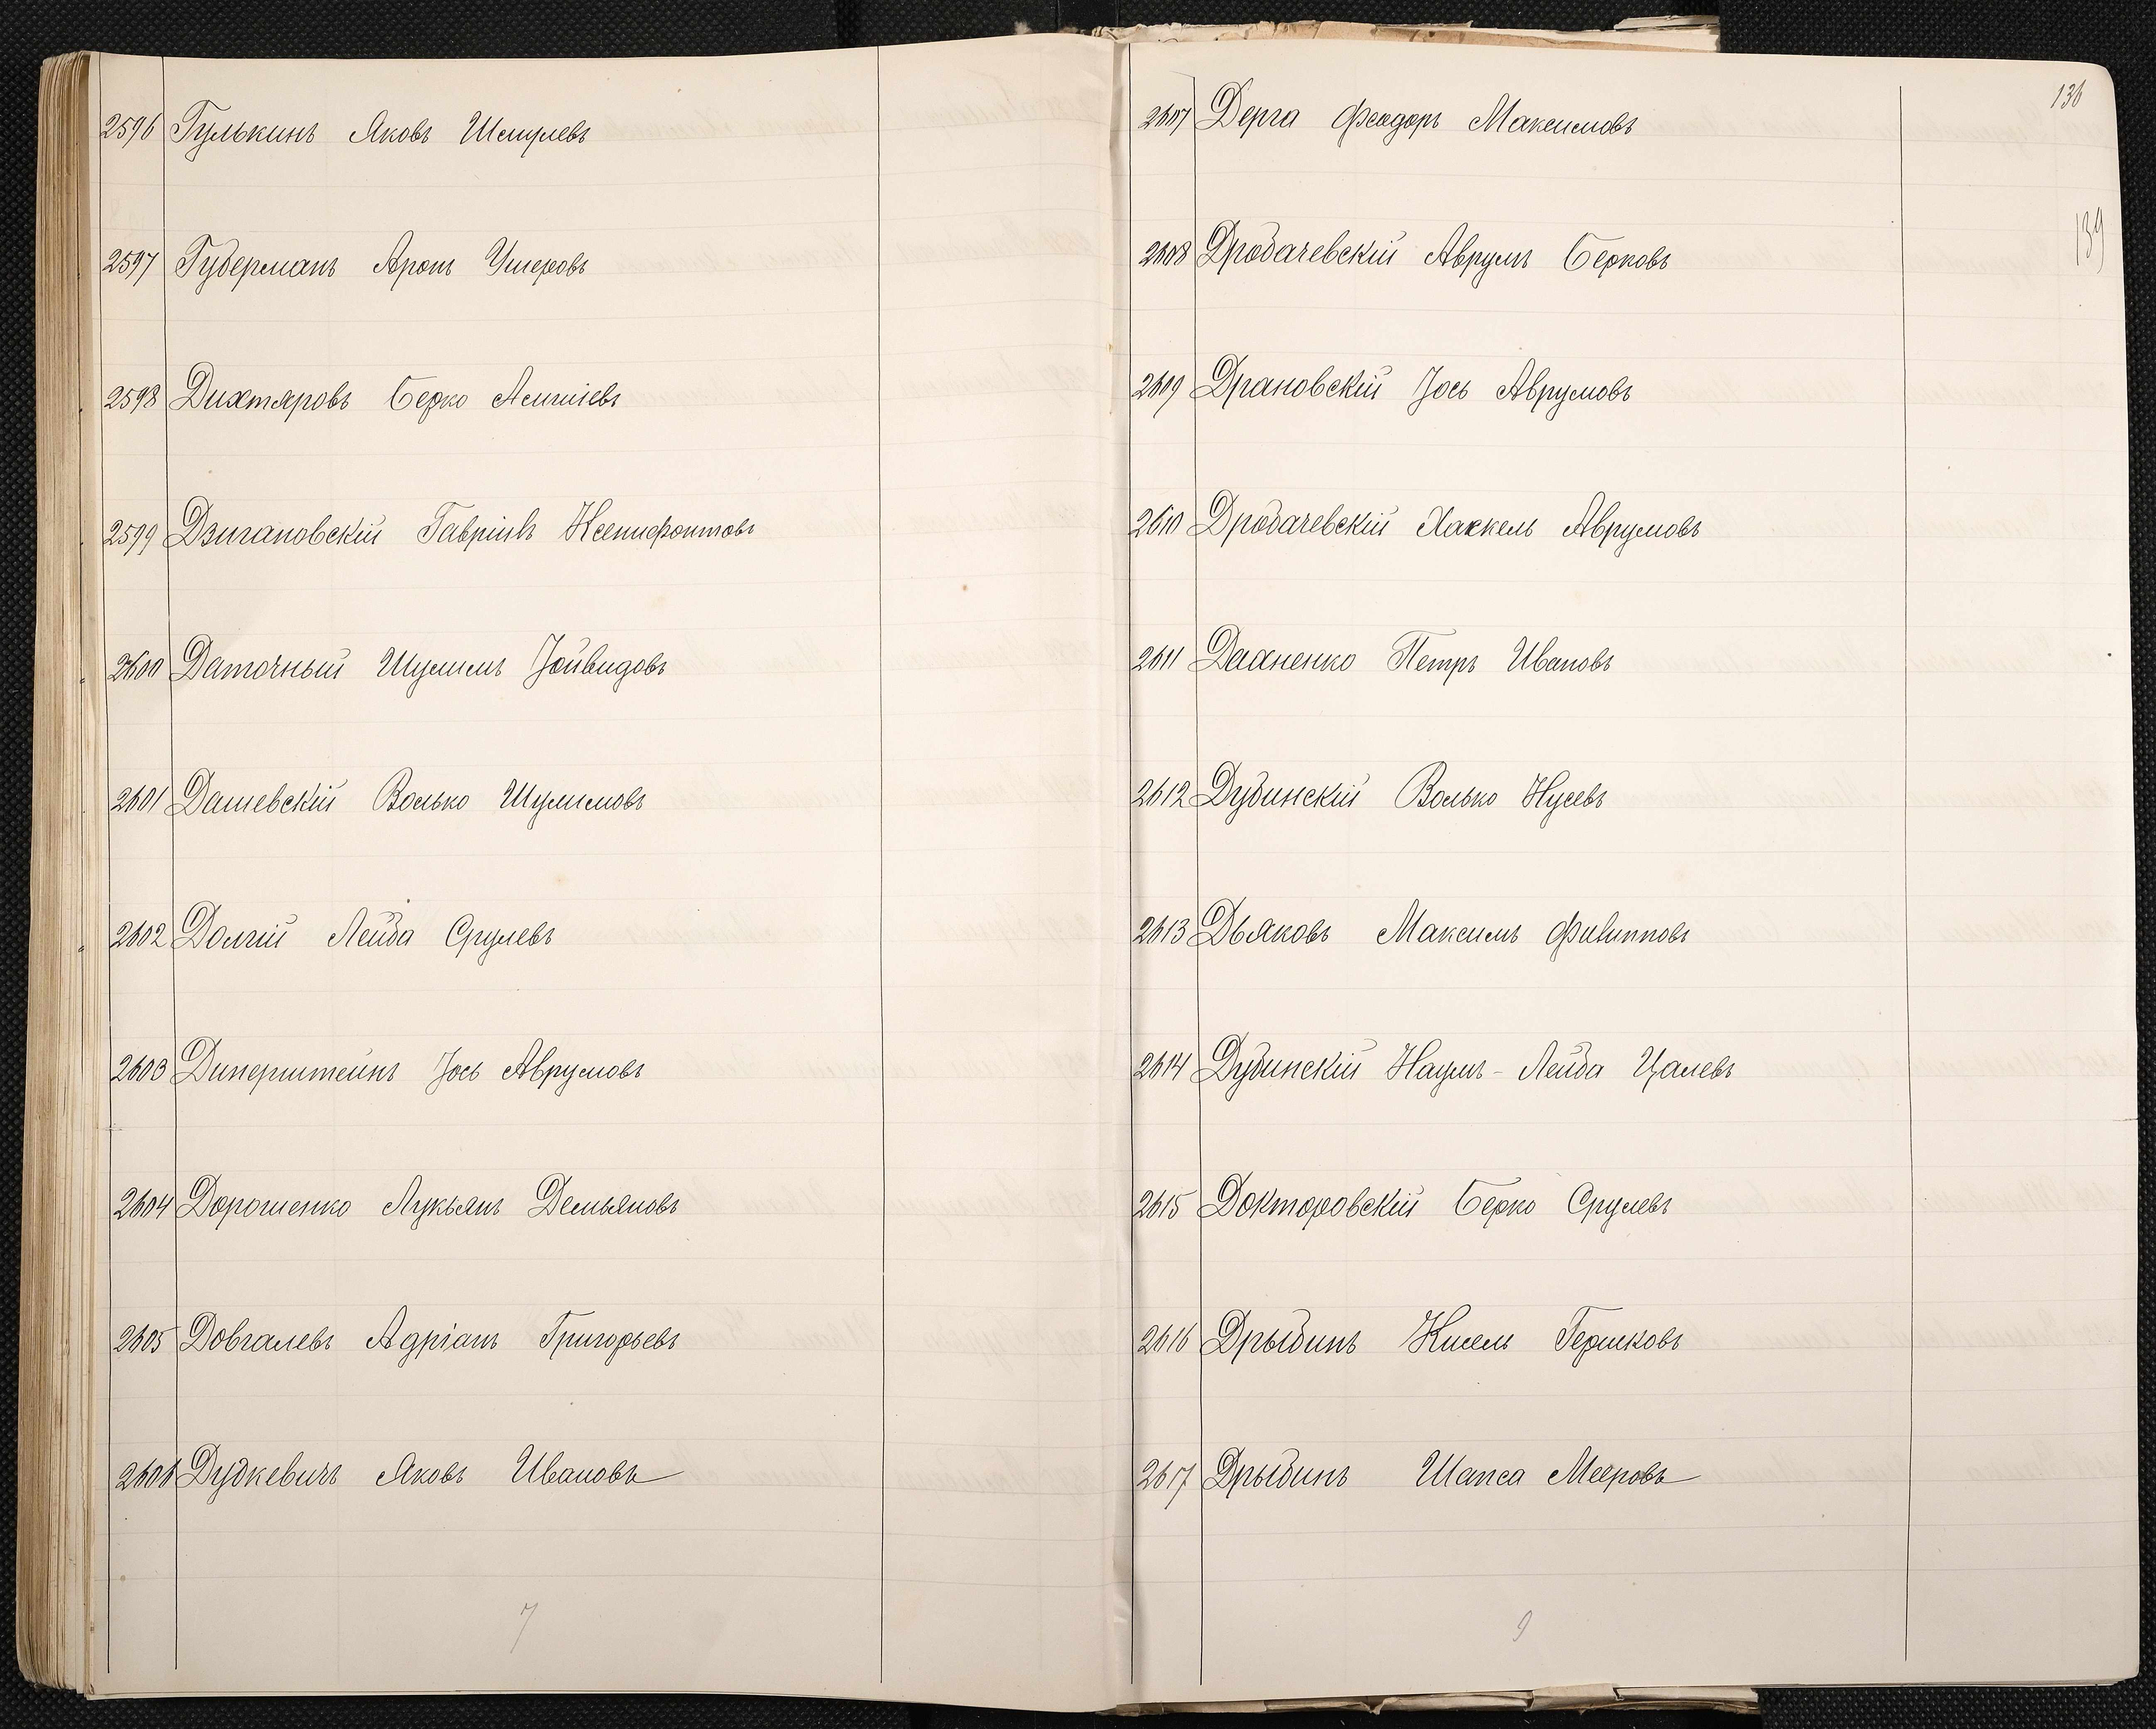 2596 Гулькинъ Яковъ Шмулевъ
2597 Губерманъ Аронъ Ушеровъ
2598 Дихтяровъ Берко
2599 Дзигановскій Гавріилъ Ксенифонтовъ
2600 Даточный Шулимъ Іойвидовъ
2601 Дашевскій Волько Шулимовъ
2602 Долгій Лейба Срулевъ
2603 Динерштейнъ Іось Аврумовъ
2604 Дорошенко Лукьянъ Демьяновъ
2605 Довгалевъ Адріанъ Григорьевъ
2606 Дудкевичъ Яковъ Ивановъ
7
136
139
2607 Дерга Феодоръ Максимовъ
2608 Дробачевскій Аврумъ Берковъ
2609 Драновскій Іось Аврумовъ
2610 Дробачевскій Хаскель Аврумовъ
2611 Дахненко Петръ Ивановъ
2612 Дубинскій Волько Нусевъ
2613 Дьяковъ Максимъ Филипповъ
2614 Дубинскій Наумъ-Лейба Цалевъ
2615 Докторовскій Берко Срулевъ
2616 Дрыбинъ Кисель Гершковъ
2617 Дрыбинъ Шапса Мееровъ
9